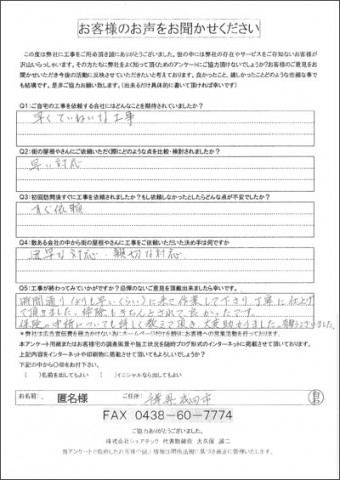 お客様のお声をお聞かせください
この度は弊社に工事をご用命頂き誠にありがとうございました。街の中には弊社の存在やサービスをご存知ないお客様が
沢山いらっしゃいます。その方たちも弊社をよく知って頂くためのアンケートにご協力頂けないでしょうか？お客様のご意見をお
聞かせいただき今後の活動に反映させていただきたいと考えております。良かったこと、嬉しかったことどのような些細な事で
も結構です。是非ご協力お願い致します。（出来るだけ具体的に書いて頂ければ幸いです）
Q1：ご自宅の工事を依頼する会社にはどんなことを期待されていましたか？
早くていねいな工事
Q2：街の屋根やさんにご依頼いただく際にどのような点を比較・検討されましたか？
早い対応
Q3：初回訪問後すぐに工事を依頼されましたか？もし依頼しなかったとしたらどんな点が不安でしたか？
すぐ依頼
Q4：数ある会社の中から街の屋根やさんに工事をご依頼いただいた決め手は何ですか
迅早な対応 親切な対応
Q5：工事が終わってみていかがですか？忌憚のないご意見を頂戴出来ましたら幸いです。
時間通り（よりも早いくらい）に来て作業して下さり、丁寧に仕上げ
て頂きました。掃除もきちんとされて良かったです。
保険の申請についても詳しく教えて頂き、大変助かりました。
本アンケート用紙またはお客様宅の調査風景や施工状況を随時ブログ形式のインターネットに掲載させて頂いております。
上記内容をインターネットや印刷物に掲載させて頂いてもよろしいでしょうか？
下記の中から○印をお付け下さい。
（　）名前を出してもよい　（　）イニシャルなら出してもよい
お名前：　匿名　様　ご住所：　千葉県成田市
FAX 0438-60-7774
ご協力ありがとうございました。
株式会社シェアテック　代表取締役　大久保　誠二